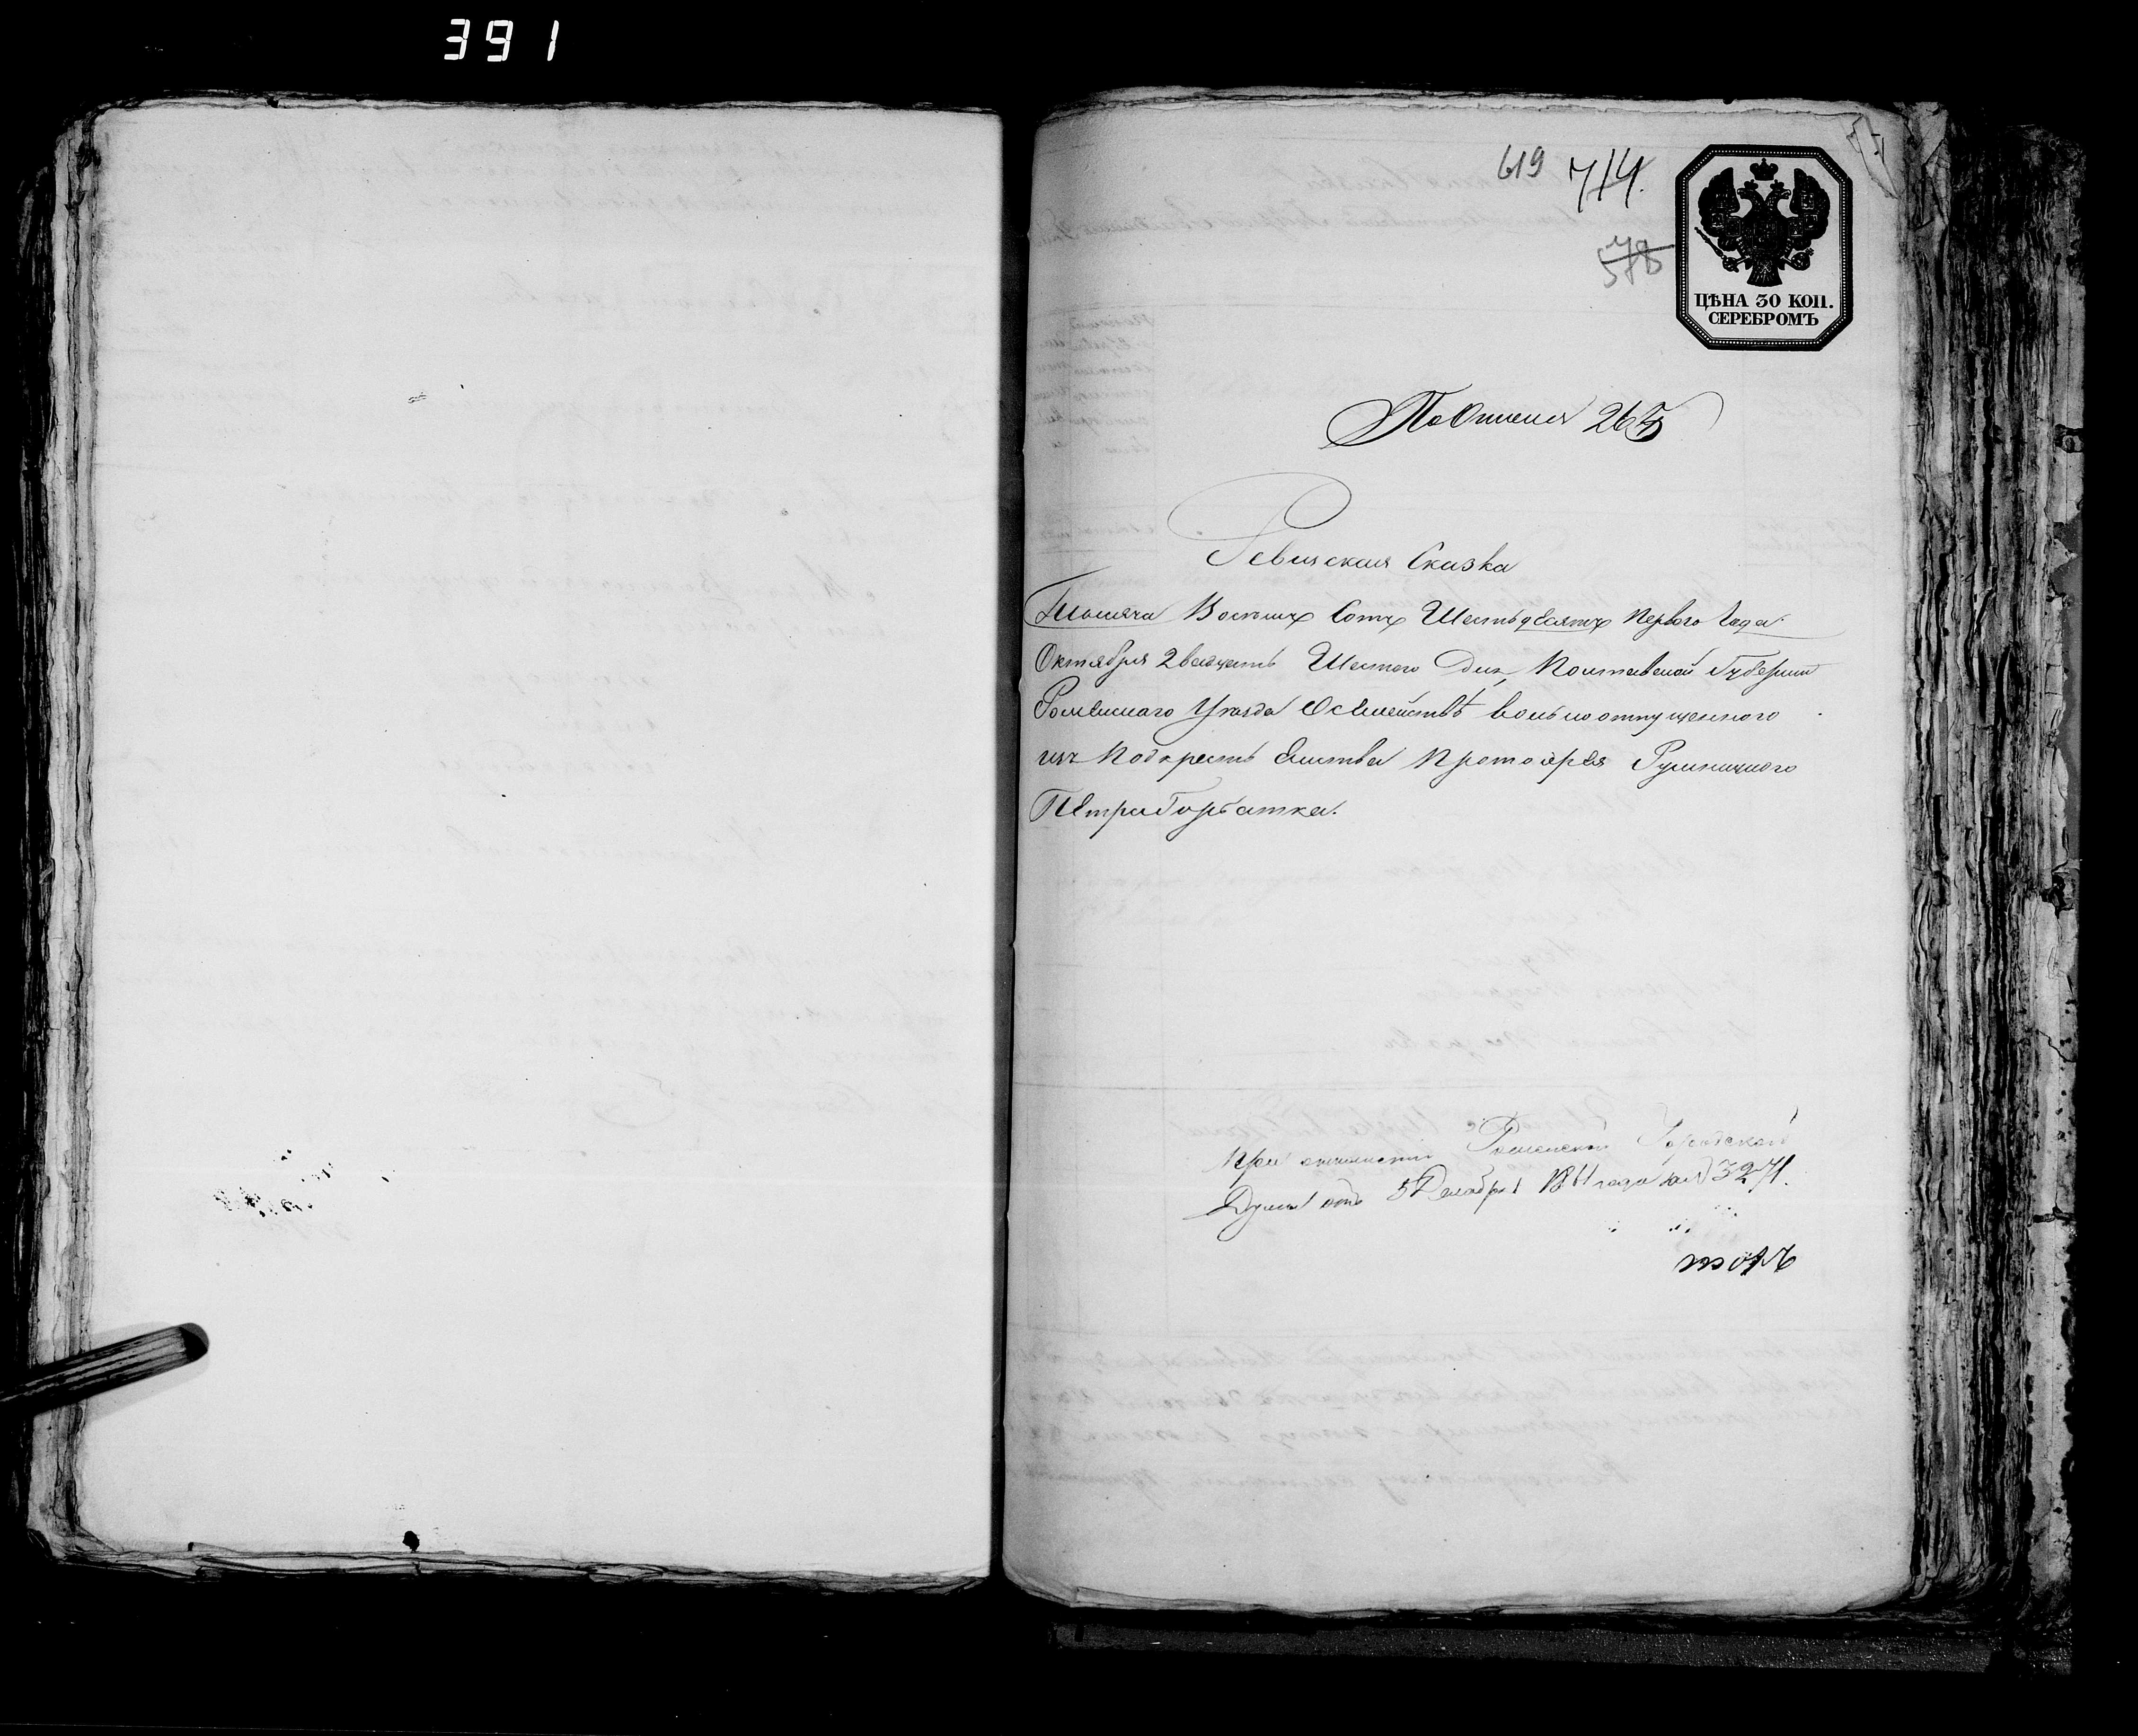 391
619 714.
578
ЦѢНА 30 КОП.
СЕРЕБРОМЪ
По Описи 265
Ревизская Сказка
Тысяча Восемь Сотъ Шестьдесятъ Первого Года
Октября Двадцать Шестого Дня, Полтавской Губерніи
Роменскаго Уѣзда О Семействѣ вольноотпущенного
изъ Подъ Протоіерея
Петра Горбатка.
При отношеніи Роменской Городской
Думы отъ 5 Декабря 1861 года за № 3271.